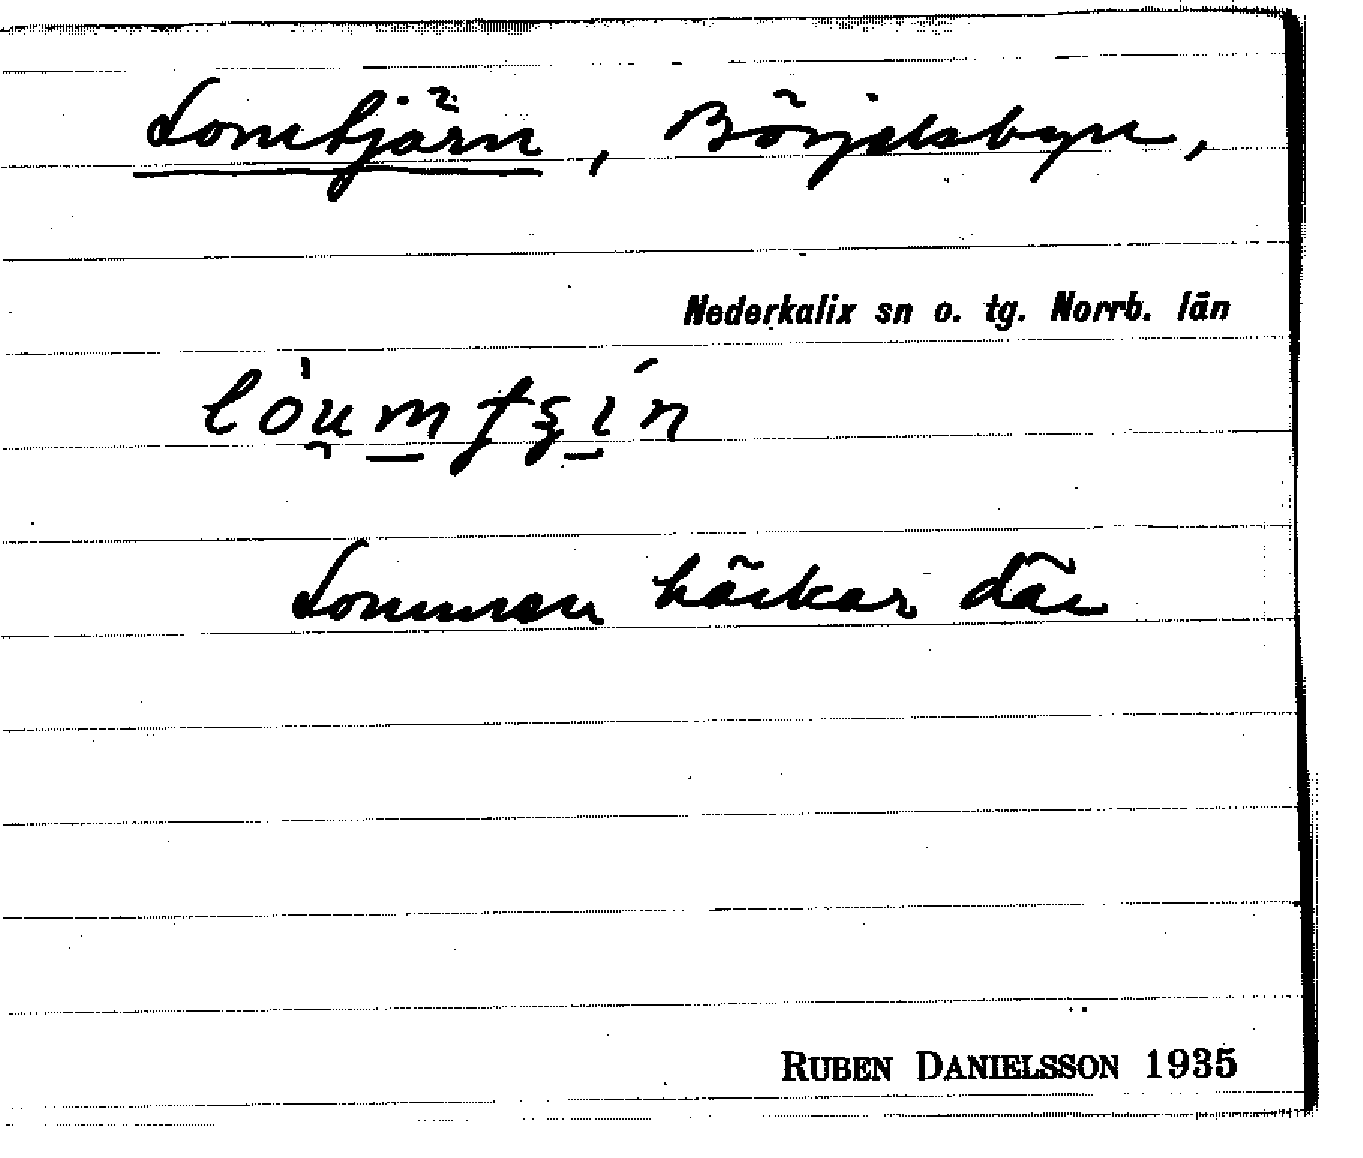 Lomtjärn, Börjelsbyn,
Nederkalix sn o. tg. Norrb. län
Lommen häckar där
RUBEN DANIELSSON 1935